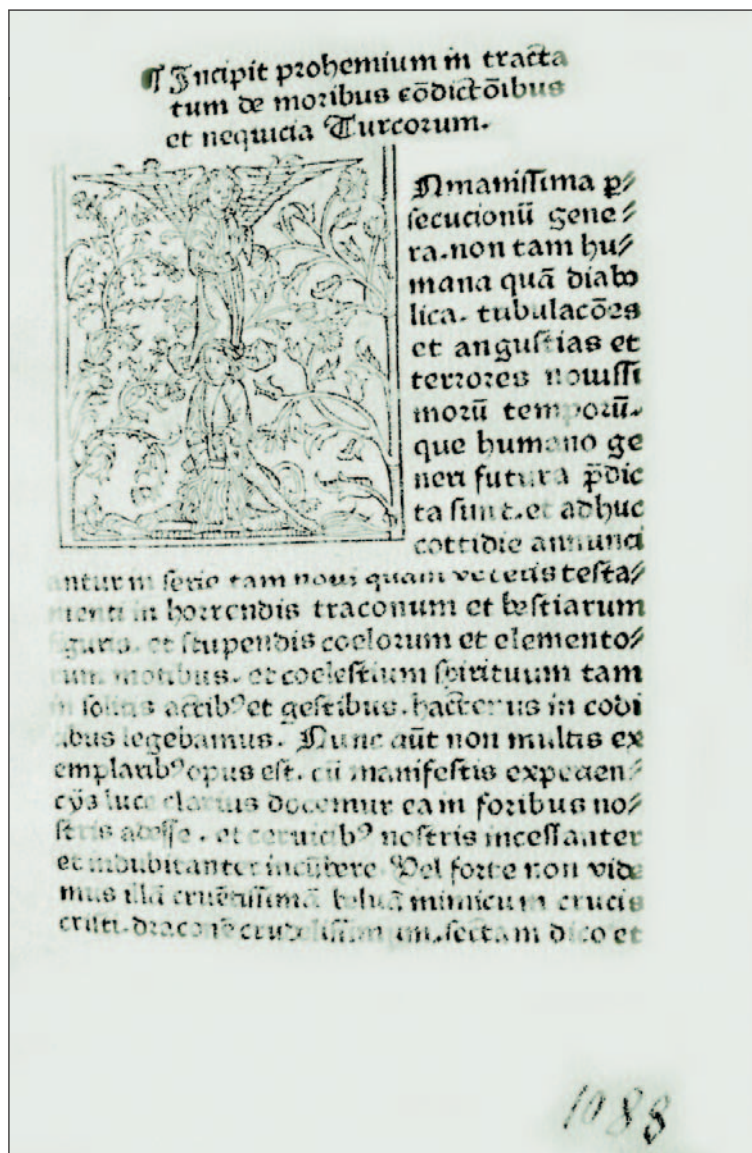 ¶ Incipit prohemium in tracta
tum de moribus cōdictōibus
et nequicia Turcorum.
Nmanissima p̱/
secucionū gene/
ra. non tam hu/
mana quā diabo
lica. tubulacōes
et angustias et
terrores nouissi
morū temporū.
que humano ge
neri futura p̄dic
ta sunt. et adhuc
cottidie annunci
antur in serie tam noui quam veteris testa/
menti in horrendis traconum et bestiarum
figuris. et stupendis coelorum et elemento/
rum motibus. et coelestium spirituum tam
in actib⁹ et gestibus. hactenus in
legebamus. Nunc aūt non multis ex
emplarib⁹ opus est. cū manifestis
luce clarius docemur eam foribus no/
stris adesse. et ceruicib⁹ nostris incessanter
et indubitanter incūbere Vel forte non vide
mus illā cruētissimā beluā inimicum crucis
cristi. draconē crudelissimum. sectam dico et
1088